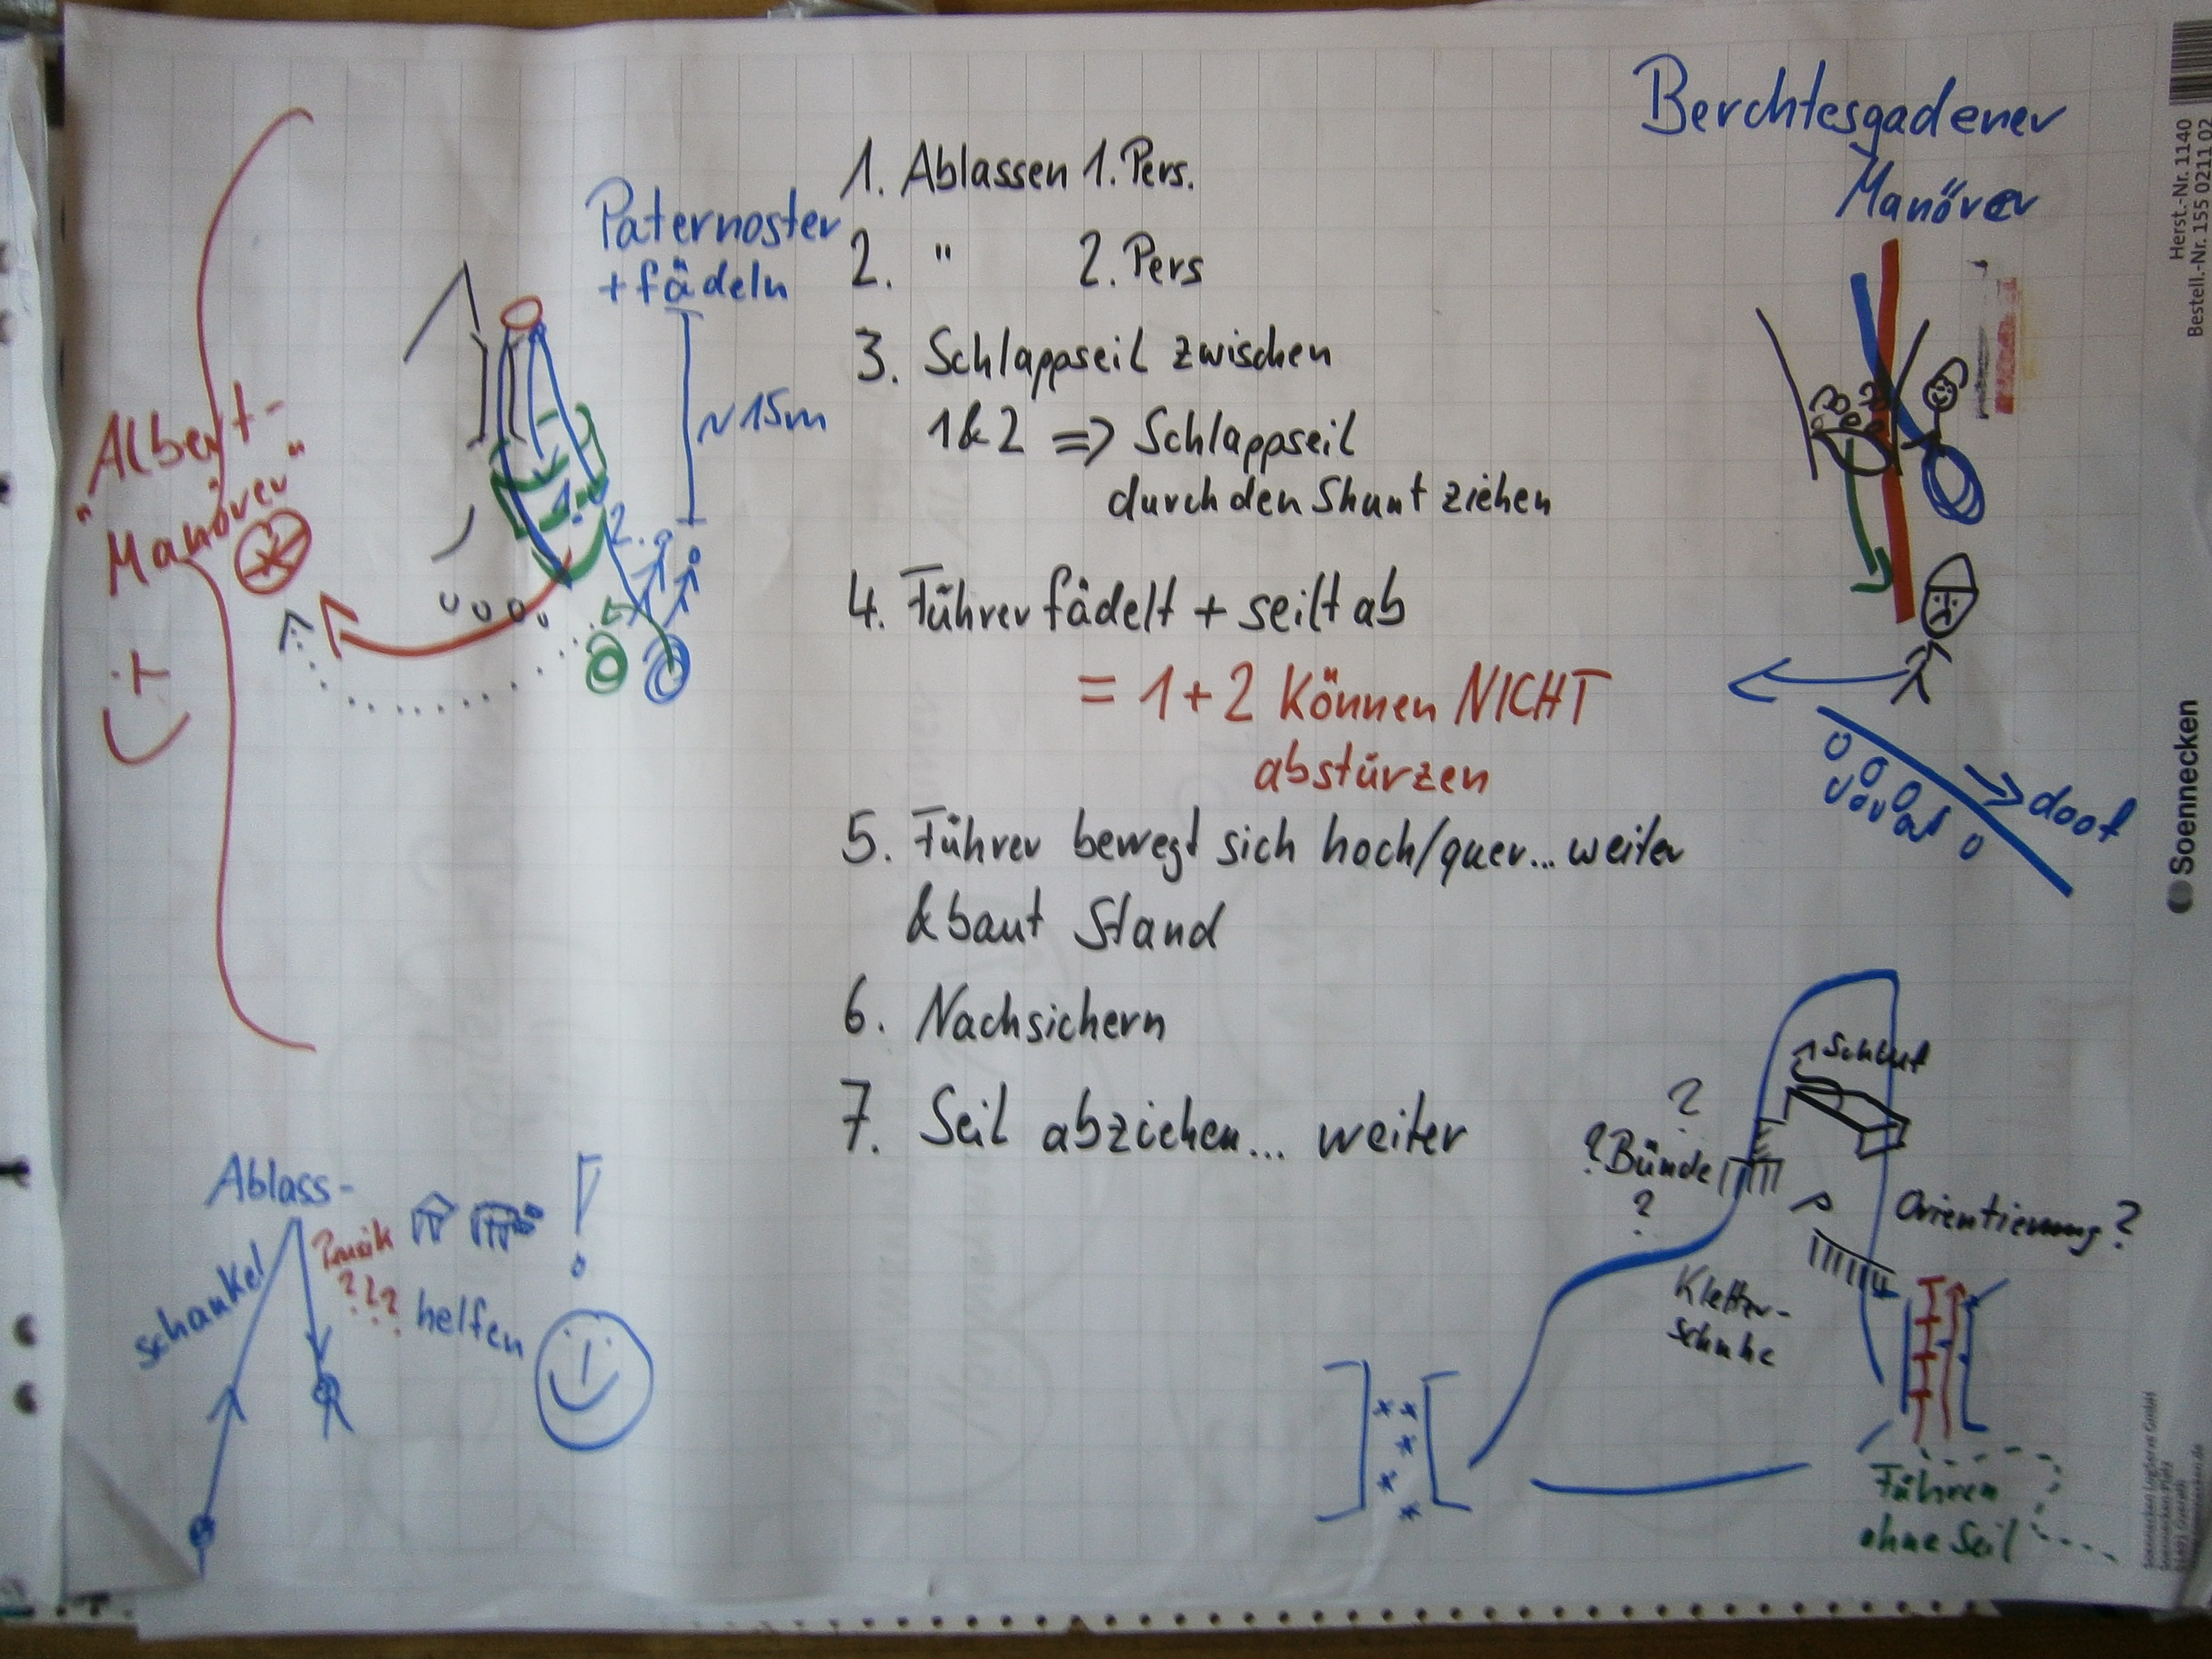 Berchtesgadener
Manöver
Paternoster
+ fädeln
~15m
1.
2.
"Albert-
Manöver"
1. Ablassen 1. Pers.
2. " 2. Pers
3. Schlappseil zwischen
1&2 => Schlappseil
durch den Shunt ziehen
4. Führer fädelt + seilt ab
= 1+2 Können NICHT
abstürzen
5. Führer bewegt sich hoch/quer... weiter
& baut Stand
6. Nachsichern
7. Seil abziehen... weiter
doof
?
? Bünde
?
Orientierung?
Kletter-
schuhe
Führen
ohne Seil
Ablass-
schaukel
???
helfen
!
Herst.-Nr. 1140
Bestell.-Nr. 155 0211 02
Soennecken